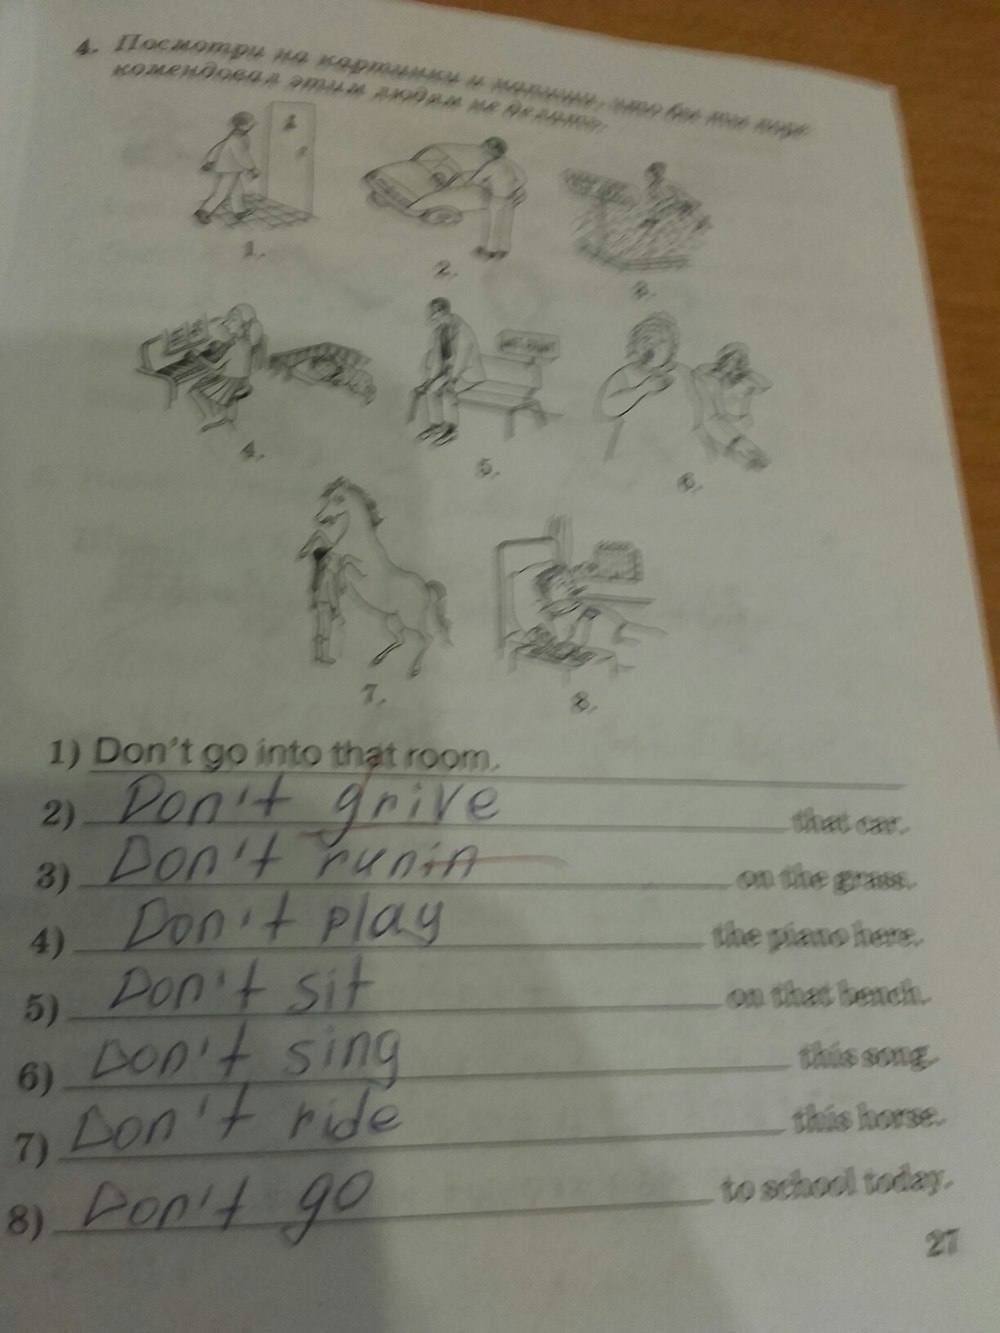 4. Посмотри на картинки и напиши, что бы ты поре-
комендовал этим людям не делать.
1.
2.
3.
4.
5.
6.
7.
8.
1) Don't go into that room.
2) Don't grive that car.
3) Don't run in on the grass.
4) Don't play the piano here.
5) Don't sit on that bench.
6) Don't sing this song.
7) Don't ride this horse.
8) Don't go to school today.
27